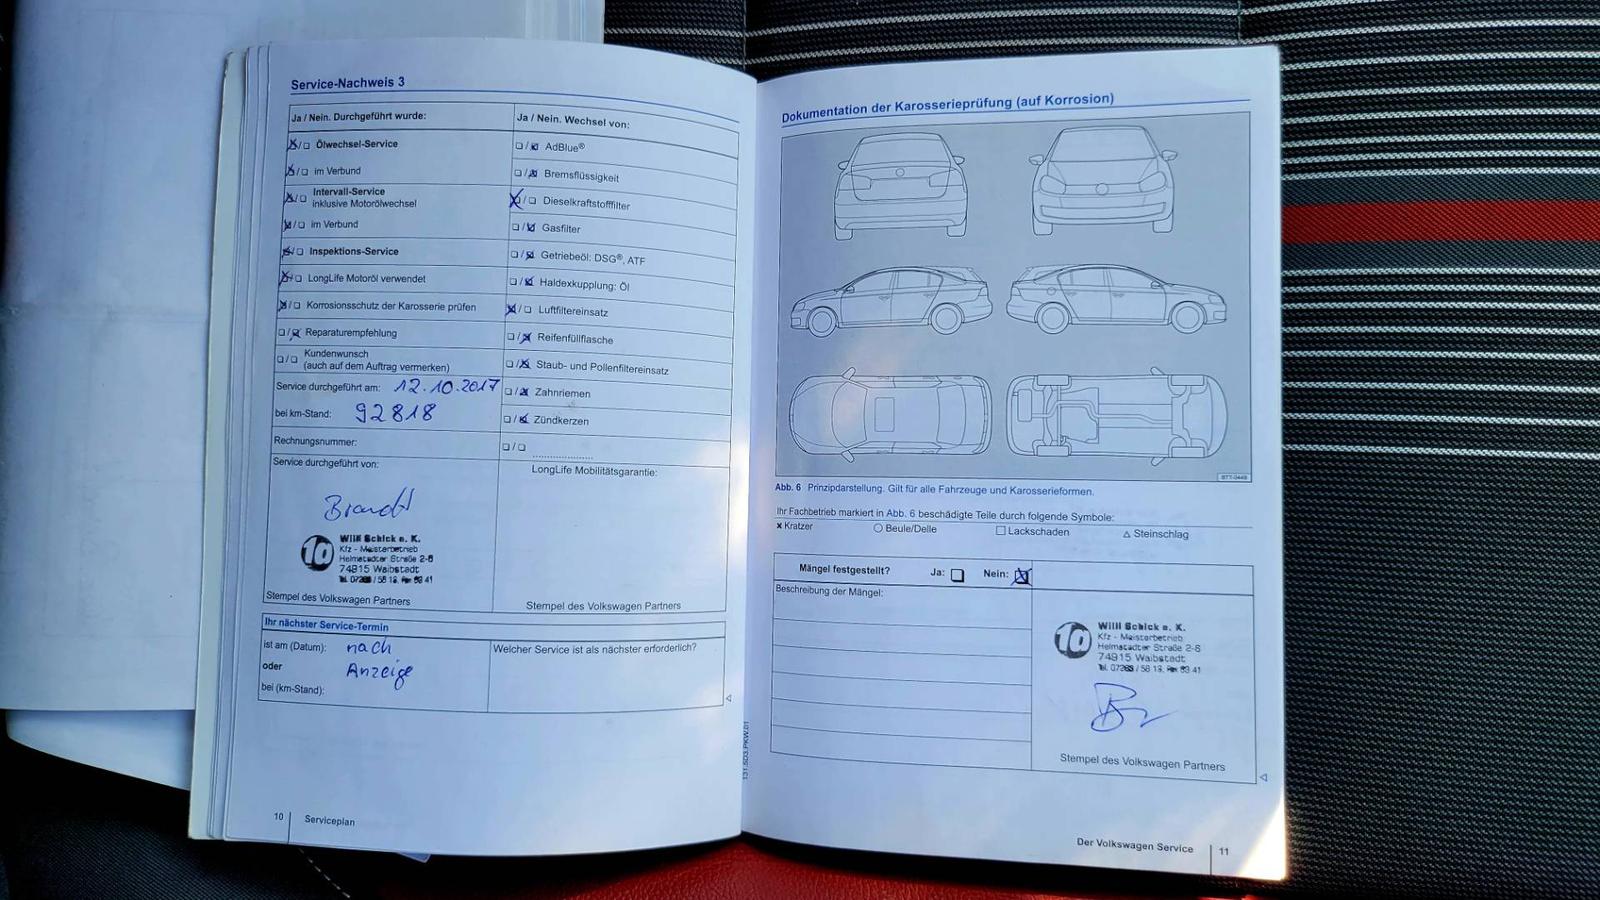 Service-Nachweis 3
Ja / Nein. Durchgeführt wurde:
Ölwechsel-Service
im Verbund
Intervall-Service
inklusive Motorölwechsel
im Verbund
Inspektions-Service
LongLife Motoröl verwendet
Korrosionsschutz der Karosserie prüfen
Reparaturempfehlung
Kundenwunsch
(auch auf dem Auftrag vermerken)
Service durchgeführt am: 12.10.2017
bei km-Stand: 92818
Rechnungsnummer:
Service durchgeführt von:
Brandt
1a
Willi Schick e. K.
Kfz - Meisterbetrieb
Helmstadter Straße 2-6
74915 Waibstadt
Stempel des Volkswagen Partners
Ja / Nein. Wechsel von:
AdBlue®
Bremsflüssigkeit
Dieselkraftstofffilter
Gasfilter
Getriebeöl: DSG®, ATF
Haldexkupplung: Öl
Luftfiltereinsatz
Reifenfüllflasche
Staub- und Pollenfiltereinsatz
Zahnriemen
Zündkerzen
LongLife Mobilitätsgarantie:
Stempel des Volkswagen Partners
Ihr nächster Service-Termin
ist am (Datum): nach
oder Anzeige
bei (km-Stand):
Welcher Service ist als nächster erforderlich?
131.5D3.PKW.01
10 Serviceplan
Dokumentation der Karosserieprüfung (auf Korrosion)
Abb. 6 Prinzipdarstellung. Gilt für alle Fahrzeuge und Karosserieformen.
Ihr Fachbetrieb markiert in Abb. 6 beschädigte Teile durch folgende Symbole:
Kratzer Beule/Delle Lackschaden Steinschlag
Mängel festgestellt? Ja: Nein:
Beschreibung der Mängel:
1a
Willi Schick e. K.
Kfz - Meisterbetrieb
Helmstadter Straße 2-6
74915 Waibstadt
Stempel des Volkswagen Partners
Der Volkswagen Service 11